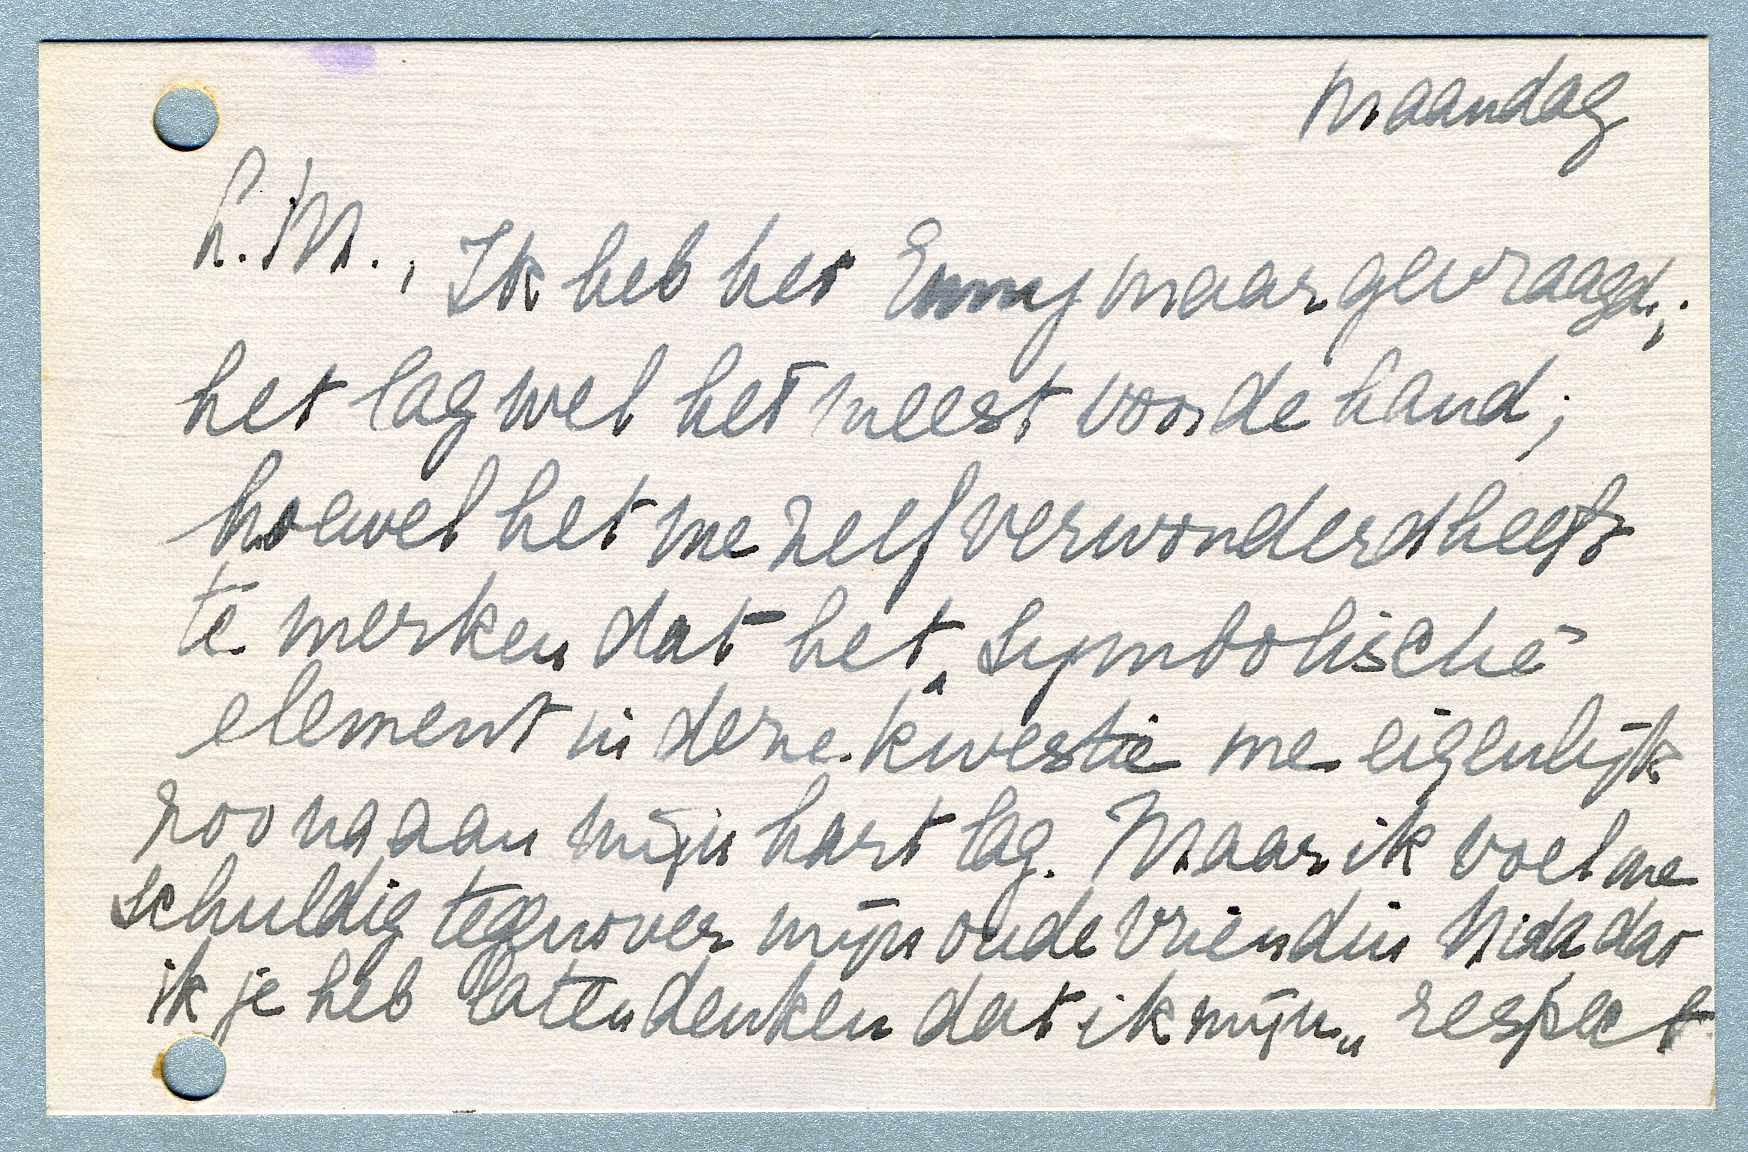 Maandag
L.M., Ik heb het Emmy maar gevraagd;
het lag wel het meest voor de hand;
hoewel het me zelf verwonderd heeft
te merken dat het „symbolische"
element in deze kwestie me eigenlijk
zoo na aan mijn hart lag. Maar ik voel me
schuldig tegenover mijn oude vriendin Nida dat
ik je heb laten denken dat ik mijn „respect